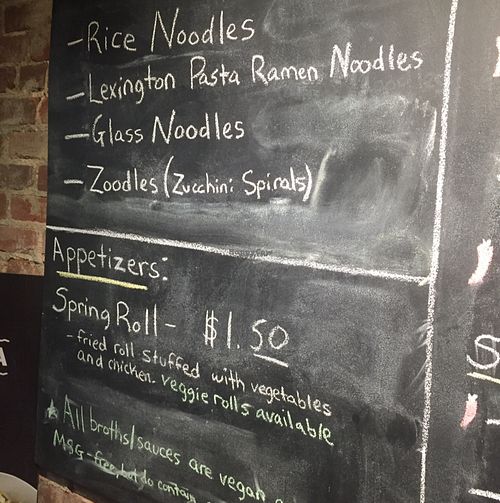 -Rice Noodles
-Lexington Pasta Ramen Noodles
-Glass Noodles
-Zoodles (Zucchini Spirals)
Appetizers:
Spring Roll - $1.50
-fried roll stuffed with vegetables
and chicken. veggie rolls available
All broths/sauces are vegan
MSG-free, but do contain